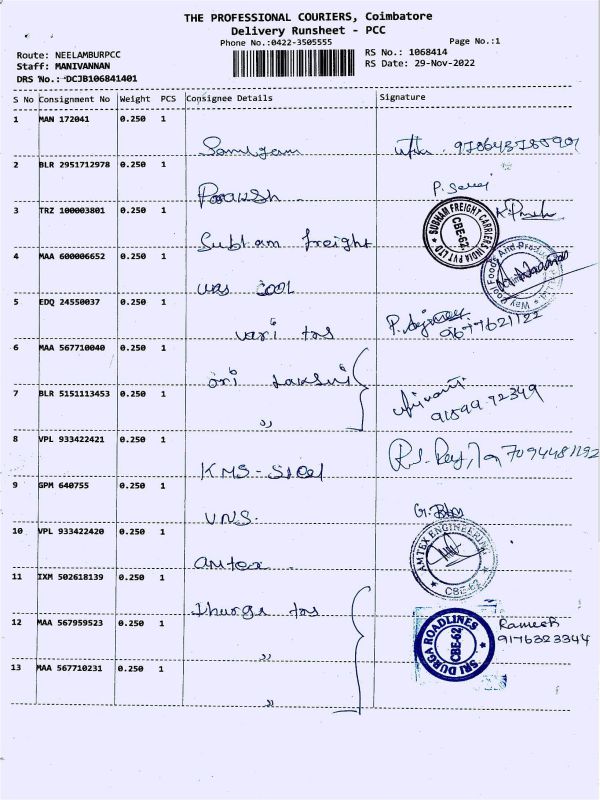 THE PROFESSIONAL COURIERS, Coimbatore
Delivery Runsheet - PCC
Phone No.:0422-3505555
Page No.:1
Route: NEELAMBURPCC
RS No.: 1068414
Staff: MANIVANNAN
RS Date: 29-Nov-2022
DRS No.: DCJB106841401
S No Consignment No Weight PCS Consignee Details Signature
1 MAN 172041 0.250 1
2 BLR 2951712978 0.250 1
Prakash
P.
3 TRZ 100003801 0.250 1
Subham freight
SUBHAM FREIGHT CARRIERS INDIA PVT LTD
CBE-62
4 MAA 600006652 0.250 1
cool
Way Cool Foods And Products
5 EDQ 24550037 0.250 1
vari trs
9677621122
6 MAA 567710040 0.250 1
Sri Lakshmi
7 BLR 5151113453 0.250 1
"
91599 72349
8 VPL 933422421 0.250 1
KMS - Steel
7094481192
9 GPM 640755 0.250 1
VNS.
G.
10 VPL 933422420 0.250 1
Amtex
AMTEX ENGINEERING
CBE-62
11 IXM 502618139 0.250 1
thurga trs
12 MAA 567959523 0.250 1
"
SRI DURGA ROADLINES
CBE-62
Ramesh
9176323344
13 MAA 567710231 0.250 1
"